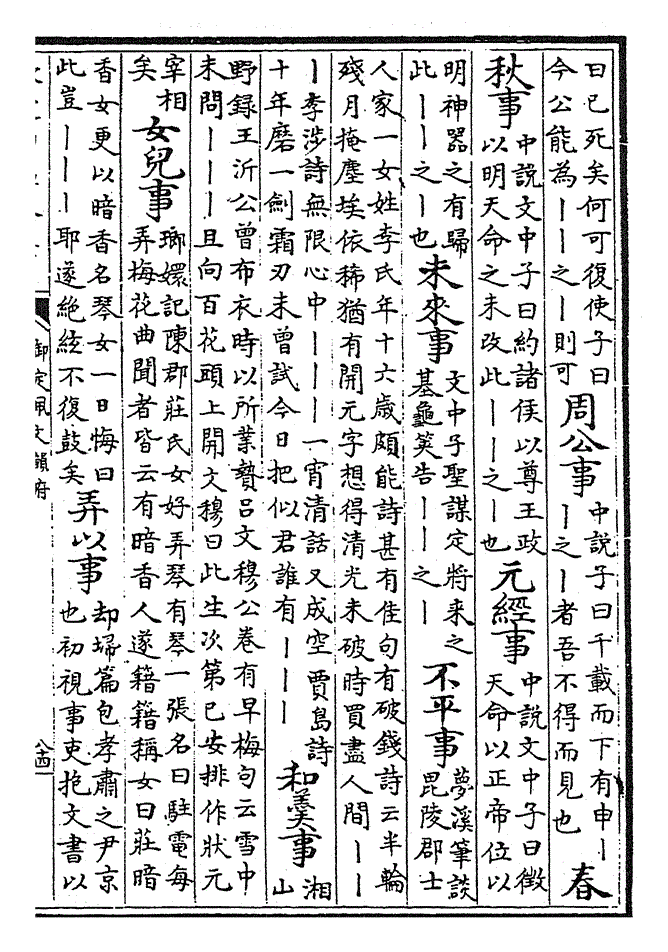 曰已死矣何可復使子曰
今公能為——之—則可
周公事
中說子曰千載而下有申—
—之—者吾不得而見也
春
秋事
中說文中子曰約諸侯以尊王政
以明天命之未改此——之—也
元經事
中說文中子曰徵
天命以正帝位以
明神器之有歸
此——之—也
未來事
文中子聖謀定將來之
基龜筴告——之—
不平事
夢溪筆談
毘陵郡士
人家一女姓李氏年十六歲頗能詩甚有佳句有破錢詩云半輪
殘月掩塵埃依稀猶有開元字想得清光未破時買盡人間——
—李涉詩無限心中———一宵清話又成空賈島詩
十年磨一劍霜刃未曾試今日把似君誰有———
和羹事
湘
山
野錄王沂公曾布衣時以所業贄呂文穆公卷有早梅句云雪中
未問———且向百花頭上開文穆曰此生次第已安排作狀元
宰相
矣
女兒事
瑯嬛記陳郡莊氏女好弄琴有琴一張名曰駐電每
弄梅花曲聞者皆云有暗香人遂籍籍稱女曰莊暗
香女更以暗香名琴女一日悔曰
此豈———耶遂絶絃不復鼓矣
弄以事
却埽篇包孝肅之尹京
也初視事吏抱文書以
御定佩文韻府